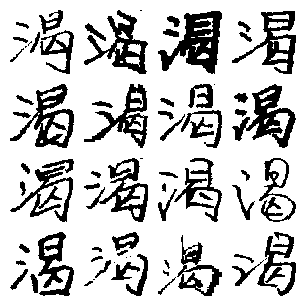 渴渴渴渴
渴渴渴渴
渴渴渴渴
渴渴渴渴